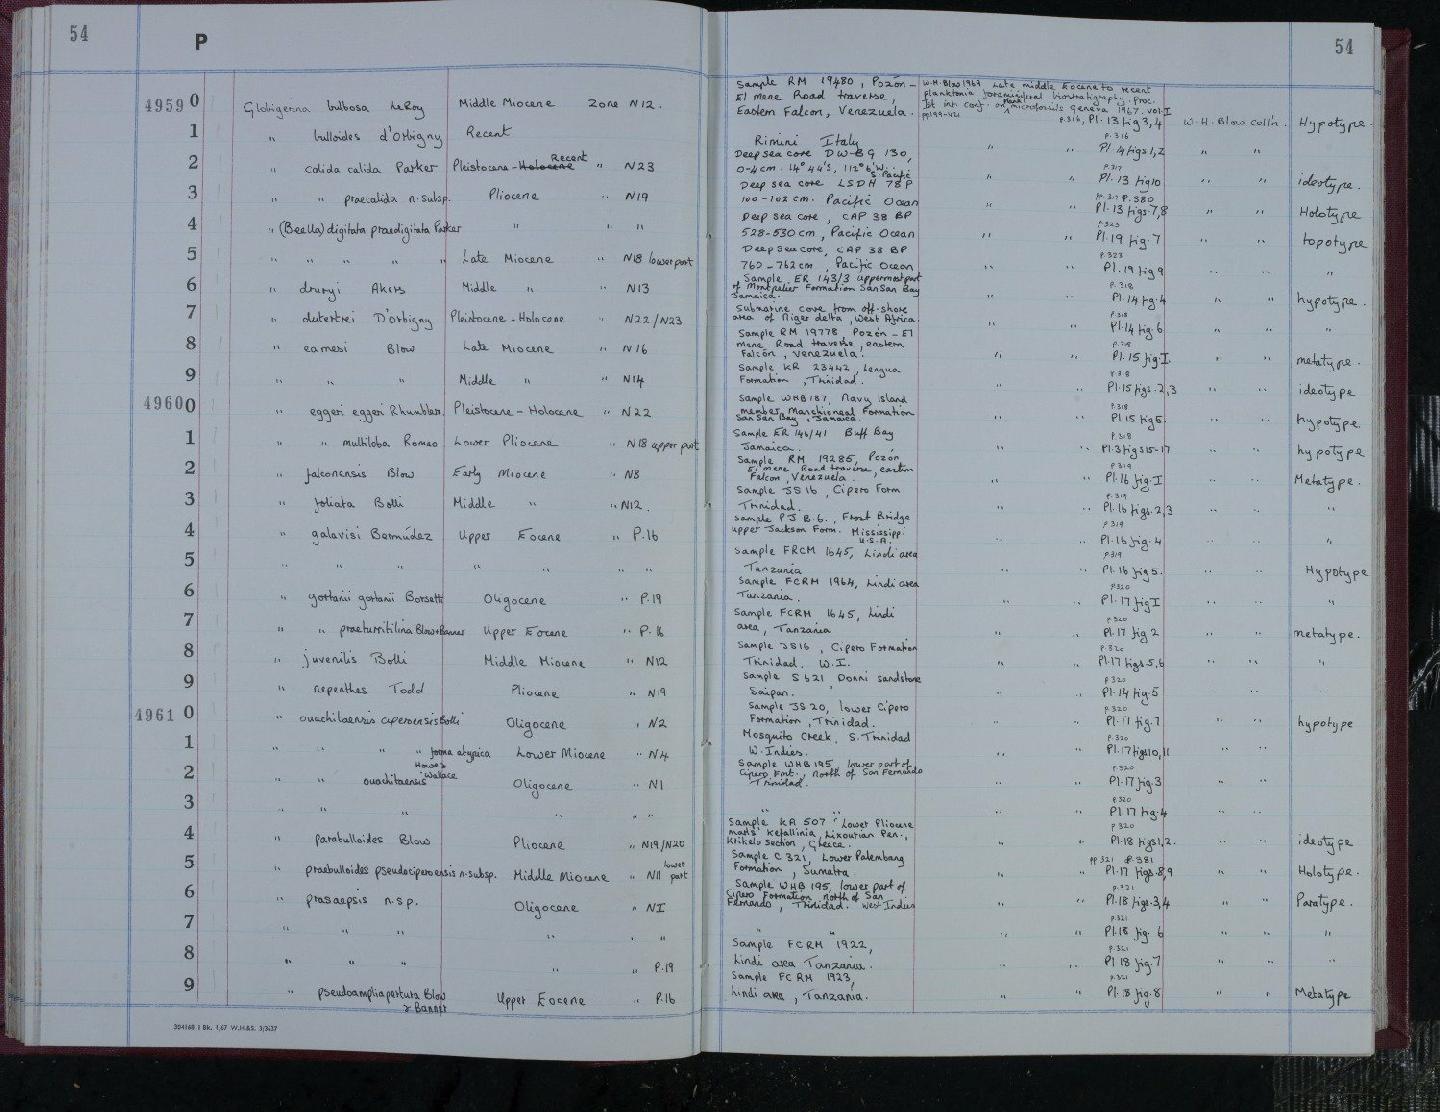 54
P
54
4959 0 Globigerina bulbosa LeRoy Middle Miocene Zone N12. Sample RM 19480, Pozón - El mene Road traverse, Eastern Falcon, Venezuela. W.H. Blow 1969 Late middle Eocene to recent planktonic foraminiferal biostratigraphy. Proc. 1st int. conf. on plank microfossils geneva 1967. vol. I pp199-421 p.316, Pl. 13 fig 3,4 W.H. Blow Coll'n. Hypotype.
1 " bulloides d'Orbigny Recent Rimini Italy " " p.316 Pl. 4 figs 1,2 " "
2 " calida calida Parker Pleistocene - Holocene Recent " N23 Deep sea core DWBG 130, 0-4cm. 14°44's, 112°6'W. S. Pacific " " p.317 Pl. 13 fig 10 " " ideotype.
3 " " praecalida n. subsp. Pliocene " N19 Deep sea core LSDH 78P 100-102 cm. Pacific Ocean " " p.317 P.380 Pl. 13 figs. 7,8 " " Holotype
4 " (Beella) digitata praedigitata Parker " " " Deep sea core, CAP 38 BP 528-530 cm, Pacific Ocean " " p.323 Pl. 19 fig. 7 " " topotype
5 " " " " " Late Miocene " N18 lower part Deep sea core, CAP 38 BP 760-762 cm, Pacific Ocean " " p.323 Pl. 19 fig 9 " " "
6 " druryi Akers Middle " " N13 Sample ER 143/3 uppermost part of Montpelier Formation San San Bay Jamaica. " " p.318 Pl. 14 fig. 4 " " hypotype.
7 " dutertrei D'Orbigny Pleistocene - Holocene " N22/N23 Submarine core from off-shore area of Niger delta, West Africa. " " p.318 Pl. 14 fig. 6 " " "
8 " eamesi Blow Late Miocene " N16 Sample RM 19778, Pozón - El mene Road traverse, eastern Falcón, Venezuela. " " p.318 Pl. 15 fig. I " " metatype.
9 " " " Middle " " N14 Sample KR 23442, Lengua Formation, Trinidad. " " p.318 Pl. 15 figs. 2,3 " " ideotype
4960 0 " eggeri eggeri Rhumbler. Pleistocene - Holocene " N22 Sample WHB 187, Navy island member, Manchioneal Formation San San Bay, Jamaica. " " p.318 Pl. 15 fig 5. " " hypotype.
1 " " multiloba Romeo Lower Pliocene " N18 upper part Sample ER 146/41 Buff Bay Jamaica. " " p.318 Pl. 3 figs 15-17 " " hypotype
2 " falconensis Blow Early Miocene " N8 Sample RM 19285, Pozón El mene Road traverse, eastern Falcon, Venezuela. " " p.319 Pl. 16 fig. I " " Metatype.
3 " foliata Bolli Middle " " N12. Sample JS 16, Cipero Form Trinidad. " " p.319 Pl. 16 figs. 2,3 " " "
4 " galavisi Bermúdez Upper Eocene " P.16 Sample PJ B.6., Frost Bridge upper Jackson Form. Mississipp. U.S.A. " " p.319 Pl. 16 fig. 4 " " "
5 " " " " " " " Sample FRCM 1645, Lindi area Tanzania " " p.319 Pl. 16 fig 5. " " Hypotype
6 " gortanii gortanii Borsetti Oligocene " P.19 Sample FCRM 1964, Lindi area Tanzania. " " p.320 Pl. 17 fig I " " "
7 " " praeturritilina Blow + Banner Upper Eocene " P.16 Sample FCRM 1645, Lindi area, Tanzania " " p.320 Pl. 17 fig 2 " " metatype.
8 " juvenilis Bolli Middle Miocene " N12 Sample JS16, Cipero Formation Trinidad. W.I. " " p.320 Pl. 17 figs 5,6 " " "
9 " nepenthes Todd Pliocene " N19 Sample S621 Donni sandstone Saipan. " " p.320 Pl. 14 fig. 5 " "
4961 0 " ouachitaensis ciperoensis Bolli Oligocene " N2 Sample JS20, lower Cipero Formation, Trinidad. " " p.320 Pl. 17 fig. 7 " " hypotype
1 " " " " forma atypica Lower Miocene " N4 Mosquito Creek, S. Trinidad W. Indies. " " p.320 Pl. 17 figs 10,11 " "
2 " " ouachitaensis Howe & Wallace Oligocene " N1 Sample WHB 195, lower part of Cipero Fmt., north of San Fernando Trinidad. " " p.320 Pl. 17 fig. 3 " "
3 " " " " " " " p.320 Pl. 17 fig. 4 " "
4 " parabulloides Blow Pliocene " N19/N20 Sample KA 507 Lower Pliocene marls Kefallinia, Lixourian Pen., Kliketo section, Greece. " " p.320 Pl. 18 figs 1,2. " " ideotype
5 " praebulloides pseudociperoensis n. subsp. Middle Miocene " N11 lower part Sample C 321, Lower Palembang Formation, Sumatra " " pp 321 & 381 Pl. 17 figs. 8,9 " " Holotype.
6 " prasaepis n. sp. Oligocene " NI Sample WHB 195, lower part of Cipero Formation, north of San Fernando, Trinidad. West Indies " " p.321 Pl. 18 figs. 3,4 " " Paratype.
7 " " " " " " " " " " p.321 Pl. 18 fig. 6 " " "
8 " " " " " P.19 Sample FCRM 1922, Lindi area Tanzania. " " p.321 Pl 18 fig. 7 " " "
9 " pseudoampliapertura Blow & Banner Upper Eocene " P.16 Sample FCRM 1923, Lindi area, Tanzania. " " p.321 Pl. 18 fig. 8 " " Metatype
304168 1 Bk. 1/67 W.H.&S. 3/3637